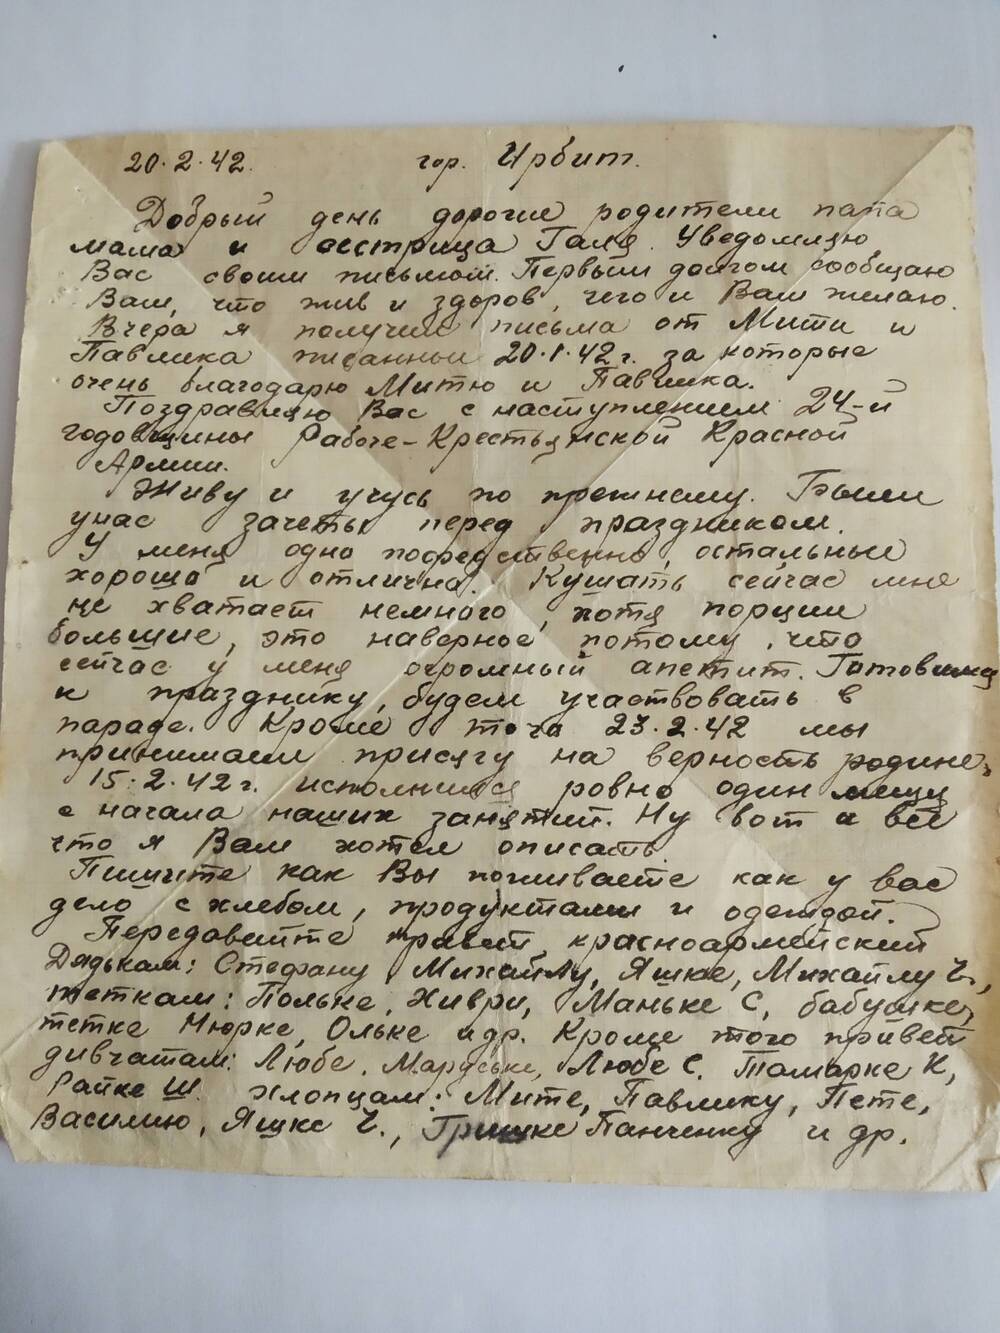 20·2·42. гор. Ирбит.
Добрый день дорогие родители папа
мама и сестрица Галя. Уведомляю
Вас своим письмом. Первым долгом сообщаю
Вам, что жив и здоров, чего и Вам желаю.
Вчера я получил письма от Мити и
Павлика писанные 20·1·42 г. за которые
очень благодарю Митю и Павлика.
Поздравляю Вас с наступлением 24-й
годовщины Рабоче-Крестьянской Красной
Армии.
Живу и учусь по прежнему. Были
у нас зачеты перед праздником.
У меня одно посредственно, остальные
хорошо и отлично. Кушать сейчас мне
не хватает немного, хотя порции
большие, это наверное потому, что
сейчас у меня огромный апетит. Готовимся
к празднику, будем участвовать в
параде. Кроме того 23·2·42 мы
принимаем присягу на верность родине.
15·2·42 г. исполнился ровно один месяц
с начала наших занятий. Ну вот и все
что я Вам хотел описать.
Пишите как Вы поживаете как у вас
дело с хлебом, продуктами и одеждой.
Передавайте привет красноармейский
Дядькам: Стефану Михайлу, Яшке, Михайлу Ч.,
теткам: Польке, Хиври, Маньке С, бабушке,
тетке Нюрке, Ольке и др. Кроме того привет
дивчатам: Любе, Маруське, Любе С. Тамарке К,
Райке Ш. Хлопцам: Мите, Павлику, Пете,
Василию, Яшке Ч., Гришке Панченку и др.